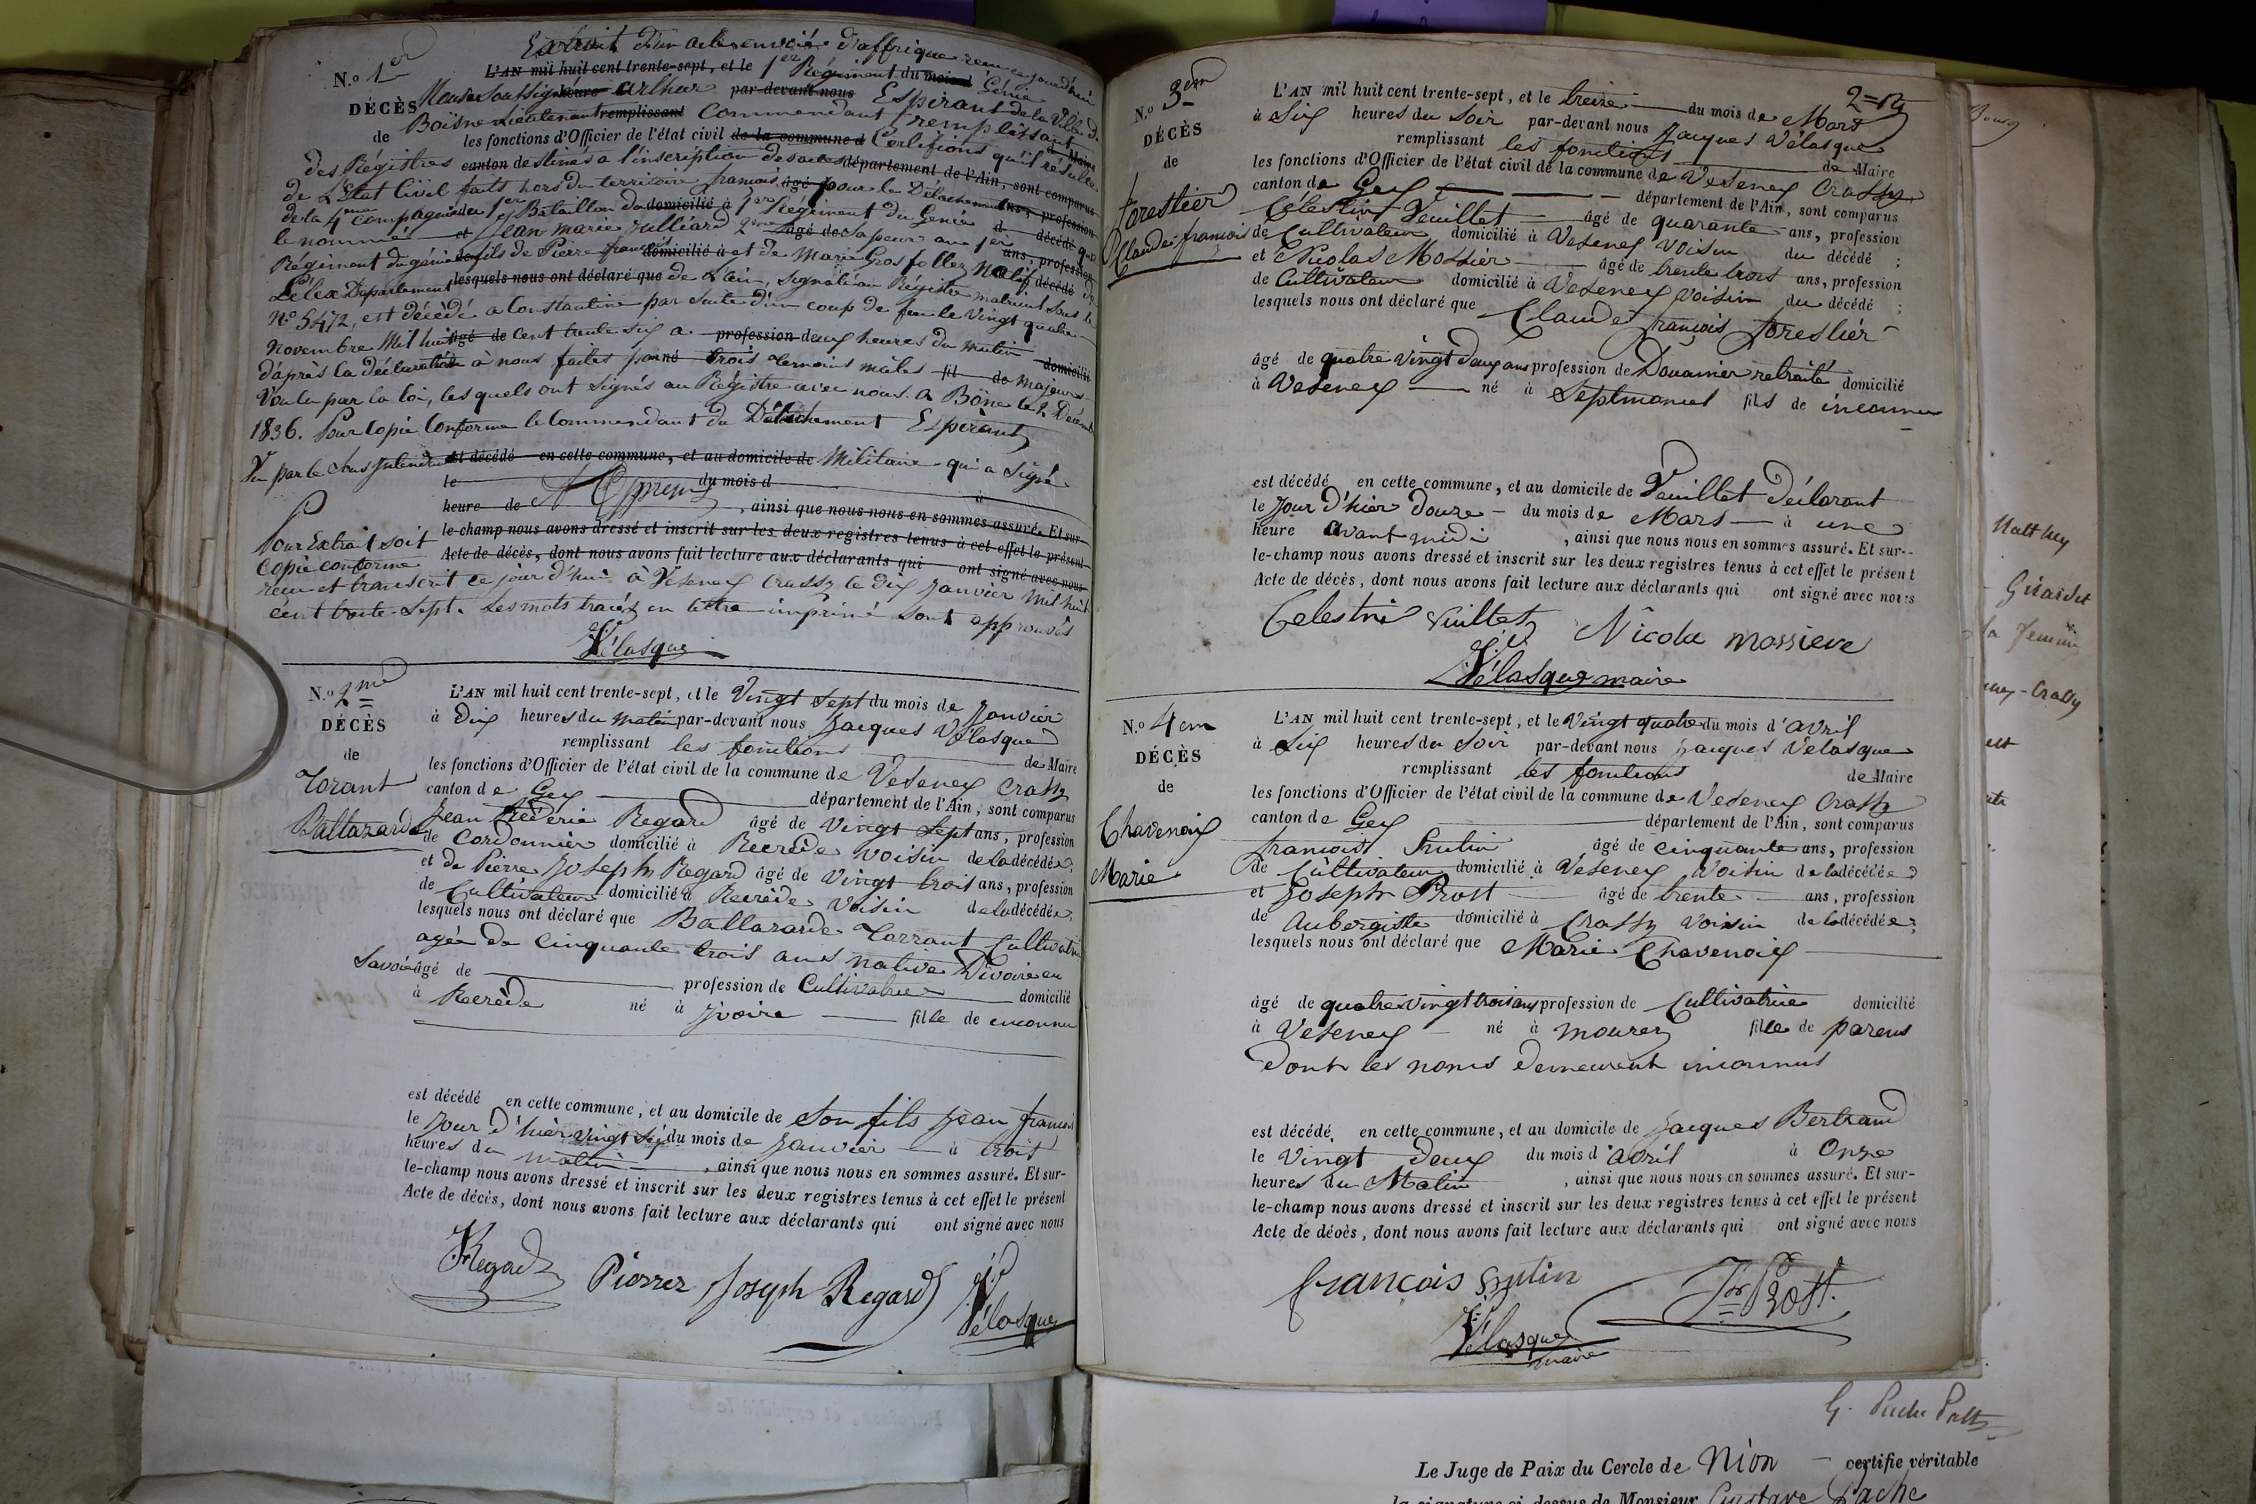 N.o 1er
Extrait d'un acte envoié d'affrique reçu ce jourd'hui
L'AN mil huit cent trente-sept, et le 1er Régiment du mois d Génie
DÉCÈS
Nous Soussigné heure arthur par-devant nous Espérant de la Ville de
de
Boisne Lieutenant remplissant Commendant remplissant de Maire
les fonctions d'Officier de l'état civil de la commune d Certifions qu'il résulte
des Régistres canton destinés a l'inscription des actes département de l'Ain, sont comparus
de L'Etat Civil faits hors du territoire français âgé pour le Détachement ans, profession
de la 4me Compagnie du 1er Bataillon du domicilié à 1er Régiment du Genie d décédé que
le nommé et Jean marie Julliard 2me âgé de Sapeur au 1er ans, profession
Régiment du genie de fils de Pierre françois domicilié à et de Marie Grosfollez Natif décédé de
Lelex Département lesquels nous ont déclaré que de L'ain, signalé au Régistre matricul Sous le
No 5472, est décédé a Constantine par Suite d'un coup de feu le Vingt quatre
novembre Mil huit âgé de Cent trente Six a profession deux heures du matin domicilié
d'après la déclaration à nous faites par né trois temoins mâles fil de majeurs
Voulu par la loi, lesquels ont signés au Régistre avec nous. a Bône le 2 Décembre
1836. Pour Copie Conforme le Commendant du Détachement Espérant
Vu par le Sous Intendant est décédé en cette commune, et au domicile de Militaire qui a Signé
le du mois d à
heure de , ainsi que nous nous en sommes assuré. Et sur-
Pour Extrait soit le-champ nous avons dressé et inscrit sur les deux registres tenus à cet effet le présent
Copie conforme Acte de décès, dont nous avons fait lecture aux déclarants qui ont signé avec nous
reçu et transcrit ce jour d'hui à Vesenex Crassy le dix Janvier mil huit
cent trente Sept. Les mots tracés en lettre imprimé Sont approuvés
Vélasque
N.o 2me
DÉCÈS
de
Torant
Baltazarde
L'AN mil huit cent trente-sept, et le Vingt Sept du mois de Janvier
à dix heures du matin par-devant nous Jacques Vélasque
remplissant les fonctions de Maire
les fonctions d'Officier de l'état civil de la commune de Vesenex Crassy
canton de Gex département de l'Ain, sont comparus
Jean Frédéric Regard âgé de Vingt Sept ans, profession
de Cordonnier domicilié à Recrède voisin de la décédée;
et de Pierre Joseph Regard âgé de Vingt trois ans, profession
de Cultivateur domicilié à Recrède Voisin de la décédée;
lesquels nous ont déclaré que Baltazarde Torrant Cultivatrice
agée de Cinquante trois ans native D'ivoire en
Savoie âgé de profession de Cultivatrice domicilié
à Recrède né à Ivoire fille de inconnu
est décédé en cette commune, et au domicile de Son fils Jean françois
le Jour d'hier vingt Six du mois de Janvier à trois
heures du matin , ainsi que nous nous en sommes assuré. Et sur-
le-champ nous avons dressé et inscrit sur les deux registres tenus à cet effet le présent
Acte de décès, dont nous avons fait lecture aux déclarants qui ont signé avec nous
Regard Pierrez Joseph Regard
Vélasque
N.o 3em
DÉCÈS
de
Forestier
Claude françois
L'AN mil huit cent trente-sept, et le treize du mois de Mars
à Six heures du Soir par-devant nous Jacques Vélasque
remplissant les fonctions de Maire
les fonctions d'Officier de l'état civil de la commune de Vesenex Crassy
canton de Gex département de l'Ain, sont comparus
Célestin Vuillet âgé de quarante ans, profession
de Cultivateur domicilié à Vesenex Voisin du décédé ;
et Nicolas Mossier âgé de trente trois ans, profession
de Cultivateur domicilié à Vesenex Voisin du décédé ;
lesquels nous ont déclaré que Claude françois Forestier
âgé de quatre Vingt Deux ans profession de Douanier retraité domicilié
à Vesenex né à Septmoncel fils de inconnu
est décédé en cette commune, et au domicile de Vuillet Déclarant
le Jour d'hier Douze du mois de Mars à une
heure avant midi , ainsi que nous nous en sommes assuré. Et sur-
le-champ nous avons dressé et inscrit sur les deux registres tenus à cet effet le présent
Acte de décès, dont nous avons fait lecture aux déclarants qui ont signé avec nous
Celestin Vuillet Nicola Mossieve
Vélasque maire
N.o 4em
DÉCÈS
de
Chavenoix
Marie
L'AN mil huit cent trente-sept, et le Vingt quatre du mois d'avril
à Six heures du Soir par-devant nous Jacques Vélasque
remplissant les fonctions de Maire
les fonctions d'Officier de l'état civil de la commune de Vesenex Crassy
canton de Gex département de l'Ain, sont comparus
françois Grutin âgé de Cinquante ans, profession
de Cultivateur domicilié à Vesenex Voisin de la décédée
et Joseph Prost âgé de trente ans, profession
de Aubergiste domicilié à Crassy Voisin de la décédée;
lesquels nous ont déclaré que Marie Chavenoix
âgé de quatre vingt trois ans profession de Cultivatrice domicilié
à Vesenex né à mourez fille de parens
Dont les noms demeurent inconnus
est décédé en cette commune, et au domicile de Jacques Bertrand
le Vingt Deux du mois d'avril à Onze
heures du Matin , ainsi que nous nous en sommes assuré. Et sur-
le-champ nous avons dressé et inscrit sur les deux registres tenus à cet effet le présent
Acte de décès, dont nous avons fait lecture aux déclarants qui ont signé avec nous
françois Grutin Jh Prost.
Vélasque
maire
Matthey
Girardet
la femme
Crassy
Le Juge de Paix du Cercle de Nion certifie véritable
la signature ci-dessus de Monsieur Gustave Pache